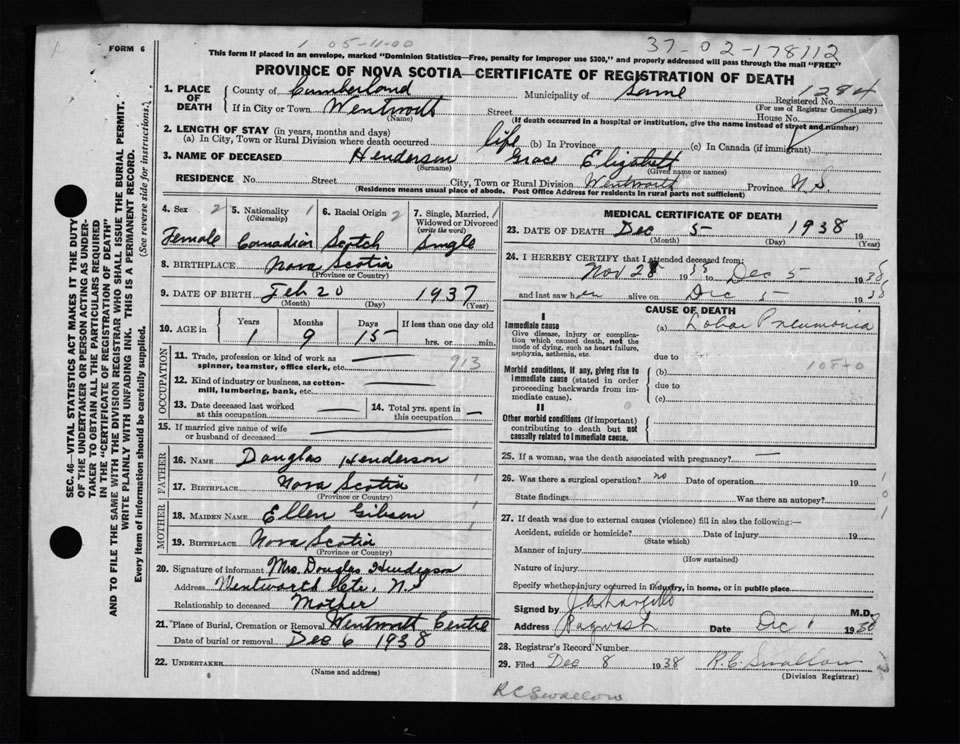 FORM 6
1 05-11-00
37-02-178112
This form if placed in an envelope, marked "Dominion Statistics—Free, penalty for improper use $300," and properly addressed will pass through the mail "FREE"
PROVINCE OF NOVA SCOTIA—CERTIFICATE OF REGISTRATION OF DEATH
1. PLACE OF DEATH County of Cumberland Municipality of Same Registered No. 1284
(For use of Registrar General only)
If in City or Town Wentworth Street House No.
(Name) (If death occurred in a hospital or institution, give the name instead of street and number)
2. LENGTH OF STAY (in years, months and days)
(a) In City, Town or Rural Division where death occurred life (b) In Province (c) In Canada (if immigrant)
3. NAME OF DECEASED Henderson Grace Elizabeth
(Surname) (Given name or names)
RESIDENCE No. Street City, Town or Rural Division Wentworth Province N.S.
(Residence means usual place of abode. Post Office Address for residents in rural parts not sufficient)
4. Sex 2 5. Nationality 1 (Citizenship) 6. Racial Origin 2 7. Single, Married, Widowed or Divorced (write the word) 1
Female Canadian Scotch Single
8. BIRTHPLACE Nova Scotia
(Province or Country)
9. DATE OF BIRTH Feb 20 1937
(Month) (Day) (Year)
10. AGE in Years Months Days If less than one day old
1 9 15 hrs. or min.
OCCUPATION
11. Trade, profession or kind of work as spinner, teamster, office clerk, etc. 913
12. Kind of industry or business, as cotton-mill, lumbering, bank, etc.
13. Date deceased last worked at this occupation 14. Total yrs. spent in this occupation
15. If married give name of wife or husband of deceased
FATHER
16. NAME Douglas Henderson
17. BIRTHPLACE Nova Scotia 1
(Province or Country)
MOTHER
18. MAIDEN NAME Ellen Gibson 1
19. BIRTHPLACE Nova Scotia 1
(Province or Country)
20. Signature of informant Mrs. Douglas Henderson
Address Wentworth Ctr. N.S
Relationship to deceased Mother
21. Place of Burial, Cremation or Removal Wentworth Centre
Date of burial or removal Dec 6 1938
22. UNDERTAKER
(Name and address)
6
MEDICAL CERTIFICATE OF DEATH
23. DATE OF DEATH Dec 5 1938 19
(Month) (Day) (Year)
24. I HEREBY CERTIFY that I attended deceased from:
Nov 28 1938 to Dec 5 1938
and last saw her alive on Dec 5 1938
CAUSE OF DEATH
I
Immediate cause (a) Lobar Pneumonia
Give disease, injury or complication which caused death, not the mode of dying, such as heart failure, asphyxia, asthenia, etc.
due to
Morbid conditions, if any, giving rise to immediate cause (stated in order proceeding backwards from immediate cause). (b) 108-0
due to
(c)
II
Other morbid conditions (if important) contributing to death but not causally related to immediate cause.
25. If a woman, was the death associated with pregnancy? —
26. Was there a surgical operation? no Date of operation 19
State findings Was there an autopsy?
27. If death was due to external causes (violence) fill in also the following:—
Accident, suicide or homicide? Date of injury 19
(State which)
Manner of injury
(How sustained)
Nature of injury
Specify whether injury occurred in industry, in home, or in public place
Signed by M.D.
Address Pugwash Date Dec 1938
28. Registrar's Record Number
29. Filed Dec 8 1938 R.C. Swallow
(Division Registrar)
R C Swallow
SEC. 46—VITAL STATISTICS ACT MAKES IT THE DUTY
OF THE UNDERTAKER OR PERSON ACTING AS UNDERTAKER
TO OBTAIN ALL THE PARTICULARS REQUIRED
IN THE "CERTIFICATE OF REGISTRATION OF DEATH"
AND TO FILE THE SAME WITH THE DIVISION REGISTRAR WHO SHALL ISSUE THE BURIAL PERMIT.
WRITE PLAINLY WITH UNFADING INK. THIS IS A PERMANENT RECORD.
Every item of information should be carefully supplied. (See reverse side for instructions.)